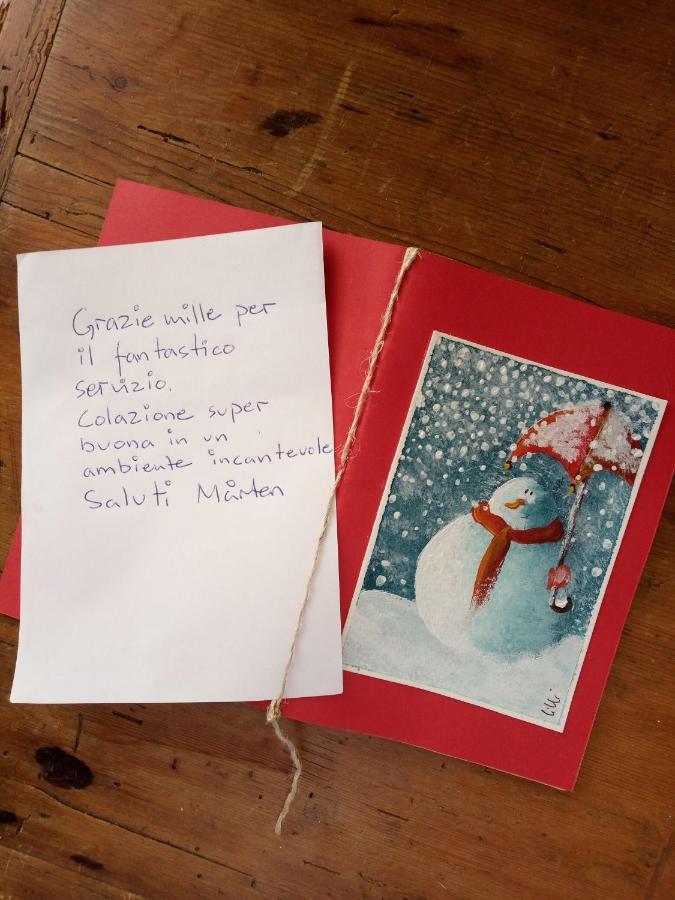 Grazie mille per
il fantastico
servizio.
Colazione super
buona in un
ambiente incantevole
Saluti Mårten
Lilli